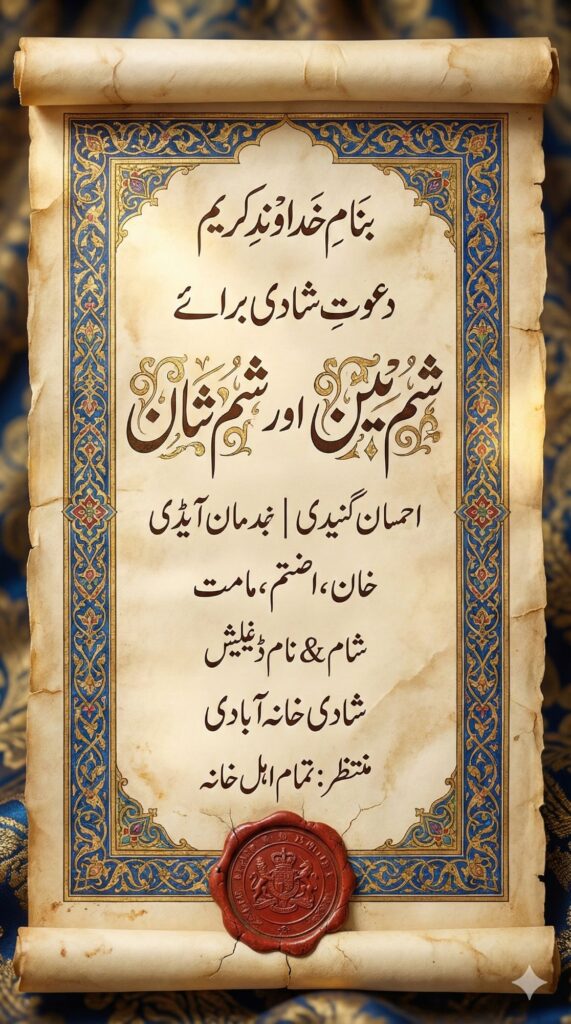 بنَامِ خَداوْندِ کریم
دعوتِ شادی برائے
شُم بَین اور شُم شان
احمسان گنیدی | خدمان آیڈی
خان، اضتم، مامت
شام & نام ڈغیلیش
شادی خانہ آبادی
منتظر: تمام اہل خانہ